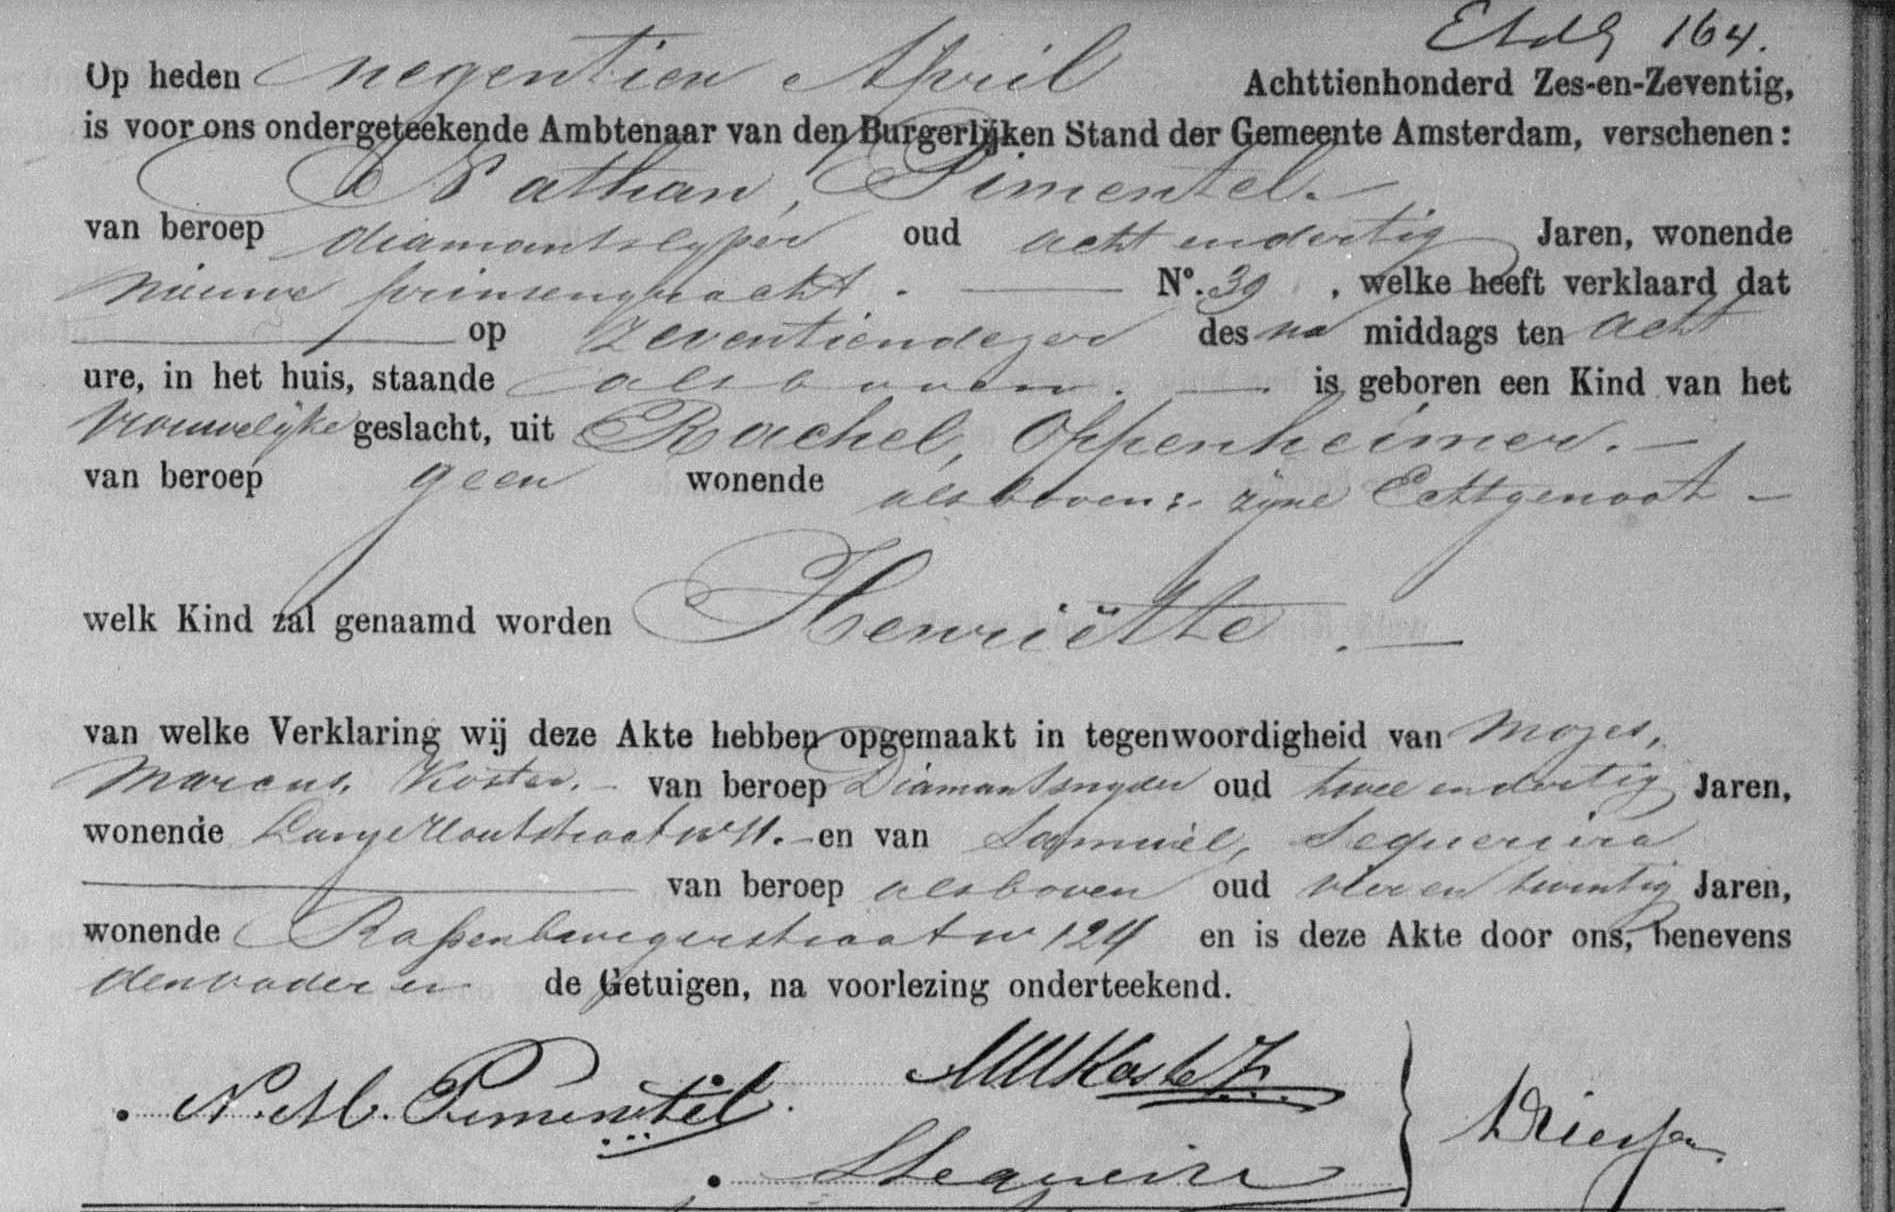 164.
Op heden negentien April Achttienhonderd Zes-en-Zeventig,
is voor ons ondergeteekende Ambtenaar van den Burgerlijken Stand der Gemeente Amsterdam, verschenen:
Nathan, Pimentel. —
van beroep diamantslyper oud acht en dertig Jaren, wonende
nieuwe prinsengracht. — No. 39, welke heeft verklaard dat
— op zeventien dezer des na middags ten acht
ure, in het huis, staande als boven. — is geboren een Kind van het
Vrouwelijke geslacht, uit Rachel, Oppenheimer. —
van beroep geen wonende als boven:- zijne Echtgenoot —
welk Kind zal genaamd worden Henriëtte. —
van welke Verklaring wij deze Akte hebben opgemaakt in tegenwoordigheid van Mozes,
Marcus, Koster. — van beroep Diamantsnyder oud twee en dertig Jaren,
wonende Lange Houtstraat no 11. — en van Samuel, Sequeira
— van beroep als boven oud vier en twintig Jaren,
wonende Rapenburgerstraat no 124 en is deze Akte door ons, benevens
den vader en de Getuigen, na voorlezing onderteekend.
MM Koster
N. M. Pimentel.
S Sequeira